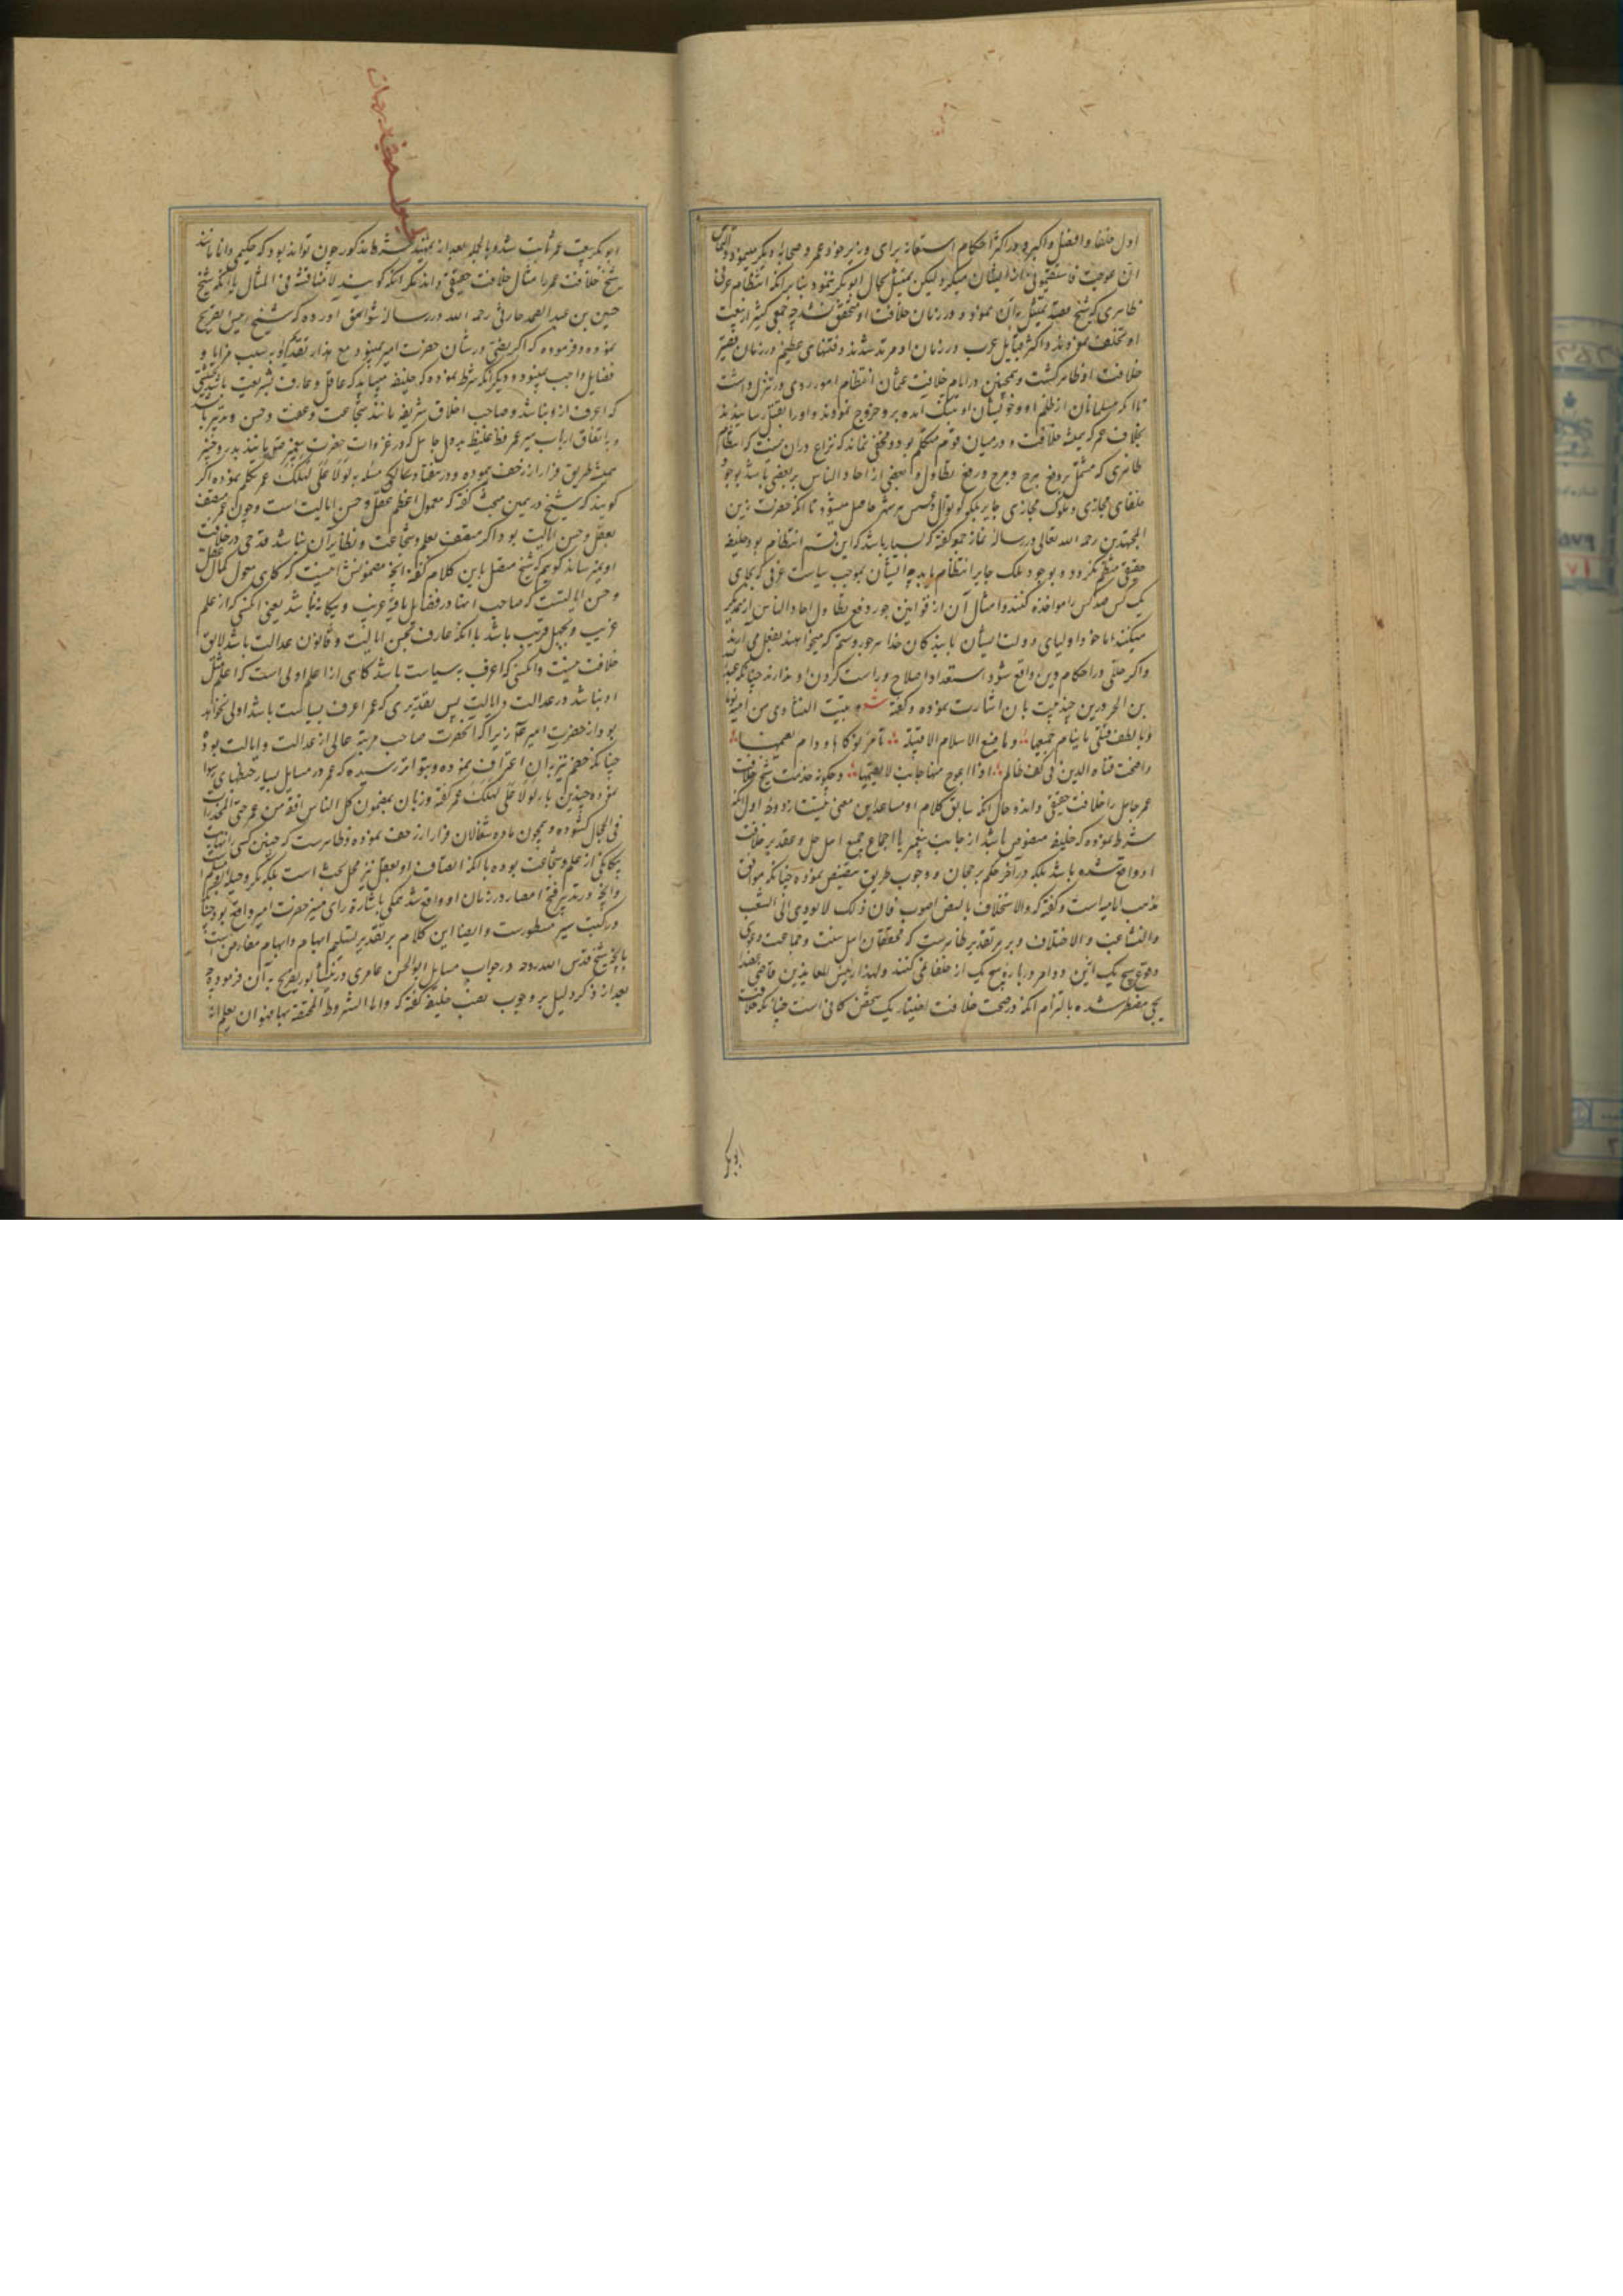 اول خلفا و افضل و اکبر بود در اکثر احکام استعانه برای وزیر خود عمر و صحابه دیگر مینمود و التماس
ان عوجت فاستقیمونی از ایشان میکرد لیکن تمثیل بحال ابوبکر ننمود بنابر آنکه انتظام عرفی
ظاهری که شیخ مقید تمثیل بآن نموده در زمان خلافت او متحقق نشد چه جمعی کثیر از بیعت
او تخلف نمودند و اکثر قبایل عرب در زمان او مرتد شدند و فتنهای عظیم در زمان قصیر
خلافت او ظاهر گشت و همچنین در ایام خلافت عثمان انتظام امور روی در تنزل داشت
تا آنکه مسلمانان از ظلم او و خویشان او بتنگ آمده برو خروج نمودند و او را بقتل رسانیدند
بخلاف عمر که همیشه خلافت در میان قوم مستحکم بود و مخفی نماند که نزاع در آن نیست که انتظام
ظاهری که مشتمل بر دفع هرج و مرج و رفع تطاول بعضی از احاد الناس بر بعضی باشد بوجود
خلفای مجازی و ملوک مجازی جایر بلکه کوتوال و عسس هر شهر حاصل میشود تا آنکه حضرت زین
المجتهدین رحمه الله تعالی در رساله نماز جمعه گفته که بسیار باشد که این قسم انتظام بوجود خلیفه
حقیقی منتظم نگردد و بوجود ملک جایر انتظام یابد چه ایشان بموجب سیاست عرفی که بجای
یک کس صد کس را مواخذه کنند و امثال آن از قوانین جور دفع تطاول احاد الناس از یکدیگر
میکنند اما خود و اولیای دولت ایشان با بندگان خدا هر جور و ستم که میخواهند بفعل می آرند
و اگر خللی در احکام دین واقع شود استعداد اصلاح و راست کردن او ندارند چنانکه
بن الحر درین چند بیت بآن اشارت نموده و گفته شعر تبیت النشاوی من امیه نوما
و بالطف قتلی ما ینام حمیمها و ما ضیع الاسلام الا قبیله تامر نوکاها و دام نعیمها
و اضحت قناة الدین فی کف ظالم اذا اعوج منها جانب لا یقیمها و چگونه خدمت شیخ خلافت
عمر جاهل را خلافت حقیقی داند و حال آنکه سابق کلام او مساعد این معنی نیست از دو وجه اول آنکه
شرط نموده که خلیفه منصوص باشد از جانب پیغمبر یا اجماع جمیع اهل حل و عقد بر خلافت
او واقع شده باشد بلکه در آخر حکم برجحان و وجوب طریق تنصیص نموده چنانکه موافق
مذهب امامیه است و گفته که والاستخلاف بالنص اصوب فان ذلک لا یودی الی التشعب
والتشاغب والاختلاف و بر هر تقدیر ظاهرست که محققان اهل سنت و جماعت دعوی
وقوع هیچ یک ازین دو امر در باره هیچ یک از خلفا نمی کنند و لهذا رئیس المعاندین قاضی عضد
ایجی مضطر شده بالتزام آنکه در صحت خلافت اختیار یک شخص کافی است چنانکه خلافت
ابوبکر
ابوبکر ببیعت عمر ثابت شد و بالجمله بعد از تمهید شرط مذکور چون تواند بود که حکیمی دانا مانند
شیخ خلافت عمر را مثال خلافت حقیقی داند مگر آنکه گویند لا مناقشة فی المثال یا آنکه شیخ
حسین بن عبد الصمد حارثی رحمه الله در رساله آورده که شیخ رئیس تصریح
نموده و فرموده که اگر نصی در شان حضرت امیر نمیبود مع هذا تقدیم او بسبب مزایا و
فضایل واجب میبود و دیگر آنکه شرط نموده که خلیفه میباید که عاقل و عارف بشریعت باشد بحیثیتی
که اعرف ازو نباشد و صاحب اخلاق شریفه مانند شجاعت و عفت و حسن تدبیر باشد
و باتفاق ارباب سیر عمر فظ غلیظ بددل جاهل که در غزوات حضرت پیغمبر مانند بدر و خیبر
همیشه طریق فرار از زحف پیموده و در هفتاد و مسئله به لولا علی لهلک عمر تکلم نموده اگر
گویند که شیخ در همین مبحث گفته که معمول اعظم عقل و حسن ایالت است و چون عمر متصف
بعقل و حسن ایالت بود اگر متصف بعلم و شجاعت و نظایر آن نباشد قدحی در خلافت
او نمیرساند گوییم که شیخ متصل باین کلام گفته آنچه مضمونش اینست که گاهی معول کمال عقل
و حسن ایالتست که صاحب آنها در فضایل باقیه غریب و بیگانه نباشد یعنی آنکسی که از علم
غریب و بجهل قریب باشد با آنکه عارف بحسن ایالت و قانون عدالت باشد لایق
خلافت نیست و آنکسی که اعرف به سیاست باشد گاهی از اعلم اولی است که اعلم مثل
او نباشد در عدالت و ایالت پس بتقدیری که عمر اعرف بسیاست باشد اولی نخواهد
بود از حضرت امیر ع زیرا که آنحضرت صاحب مرتبه عالی از عدالت و ایالت بود
چنانکه خصم نیز بدان اعتراف نموده و بتواتر رسیده که عمر در مسایل بسیار خبطهای رسوا
نموده چندین بار لولا علی لهلک عمر گفته و زبان بمضمون کل الناس افقه من عمر حتی المخدرات
فی الحجال گشوده و همچون ماده شغالان فرار از زحف نموده و ظاهرست که چنین کسی را نهایت
بیگانگی از علم و شجاعت بوده با آنکه اتصاف او بعقل نیز محل بحث است بلکه مکر و حیله
و آنچه در تدبیر فتح امصار در زمان او واقع شد همگی باشارة رای منیر حضرت امیر واقع بود چنانکه
در کتب سیر مسطورست و ایضا این کلام بر تقدیر تسلیم ابهام و ایهام معارض است
بآنچه شیخ قدس الله روحه در جواب مسایل ابوالحسن عامری در نیشابور تصریح به آن فرموده چه
بعد از ذکر دلیل بر وجوب نصب خلیفه گفته که واما الشروط المحققة بها فهو ان یعلم انه